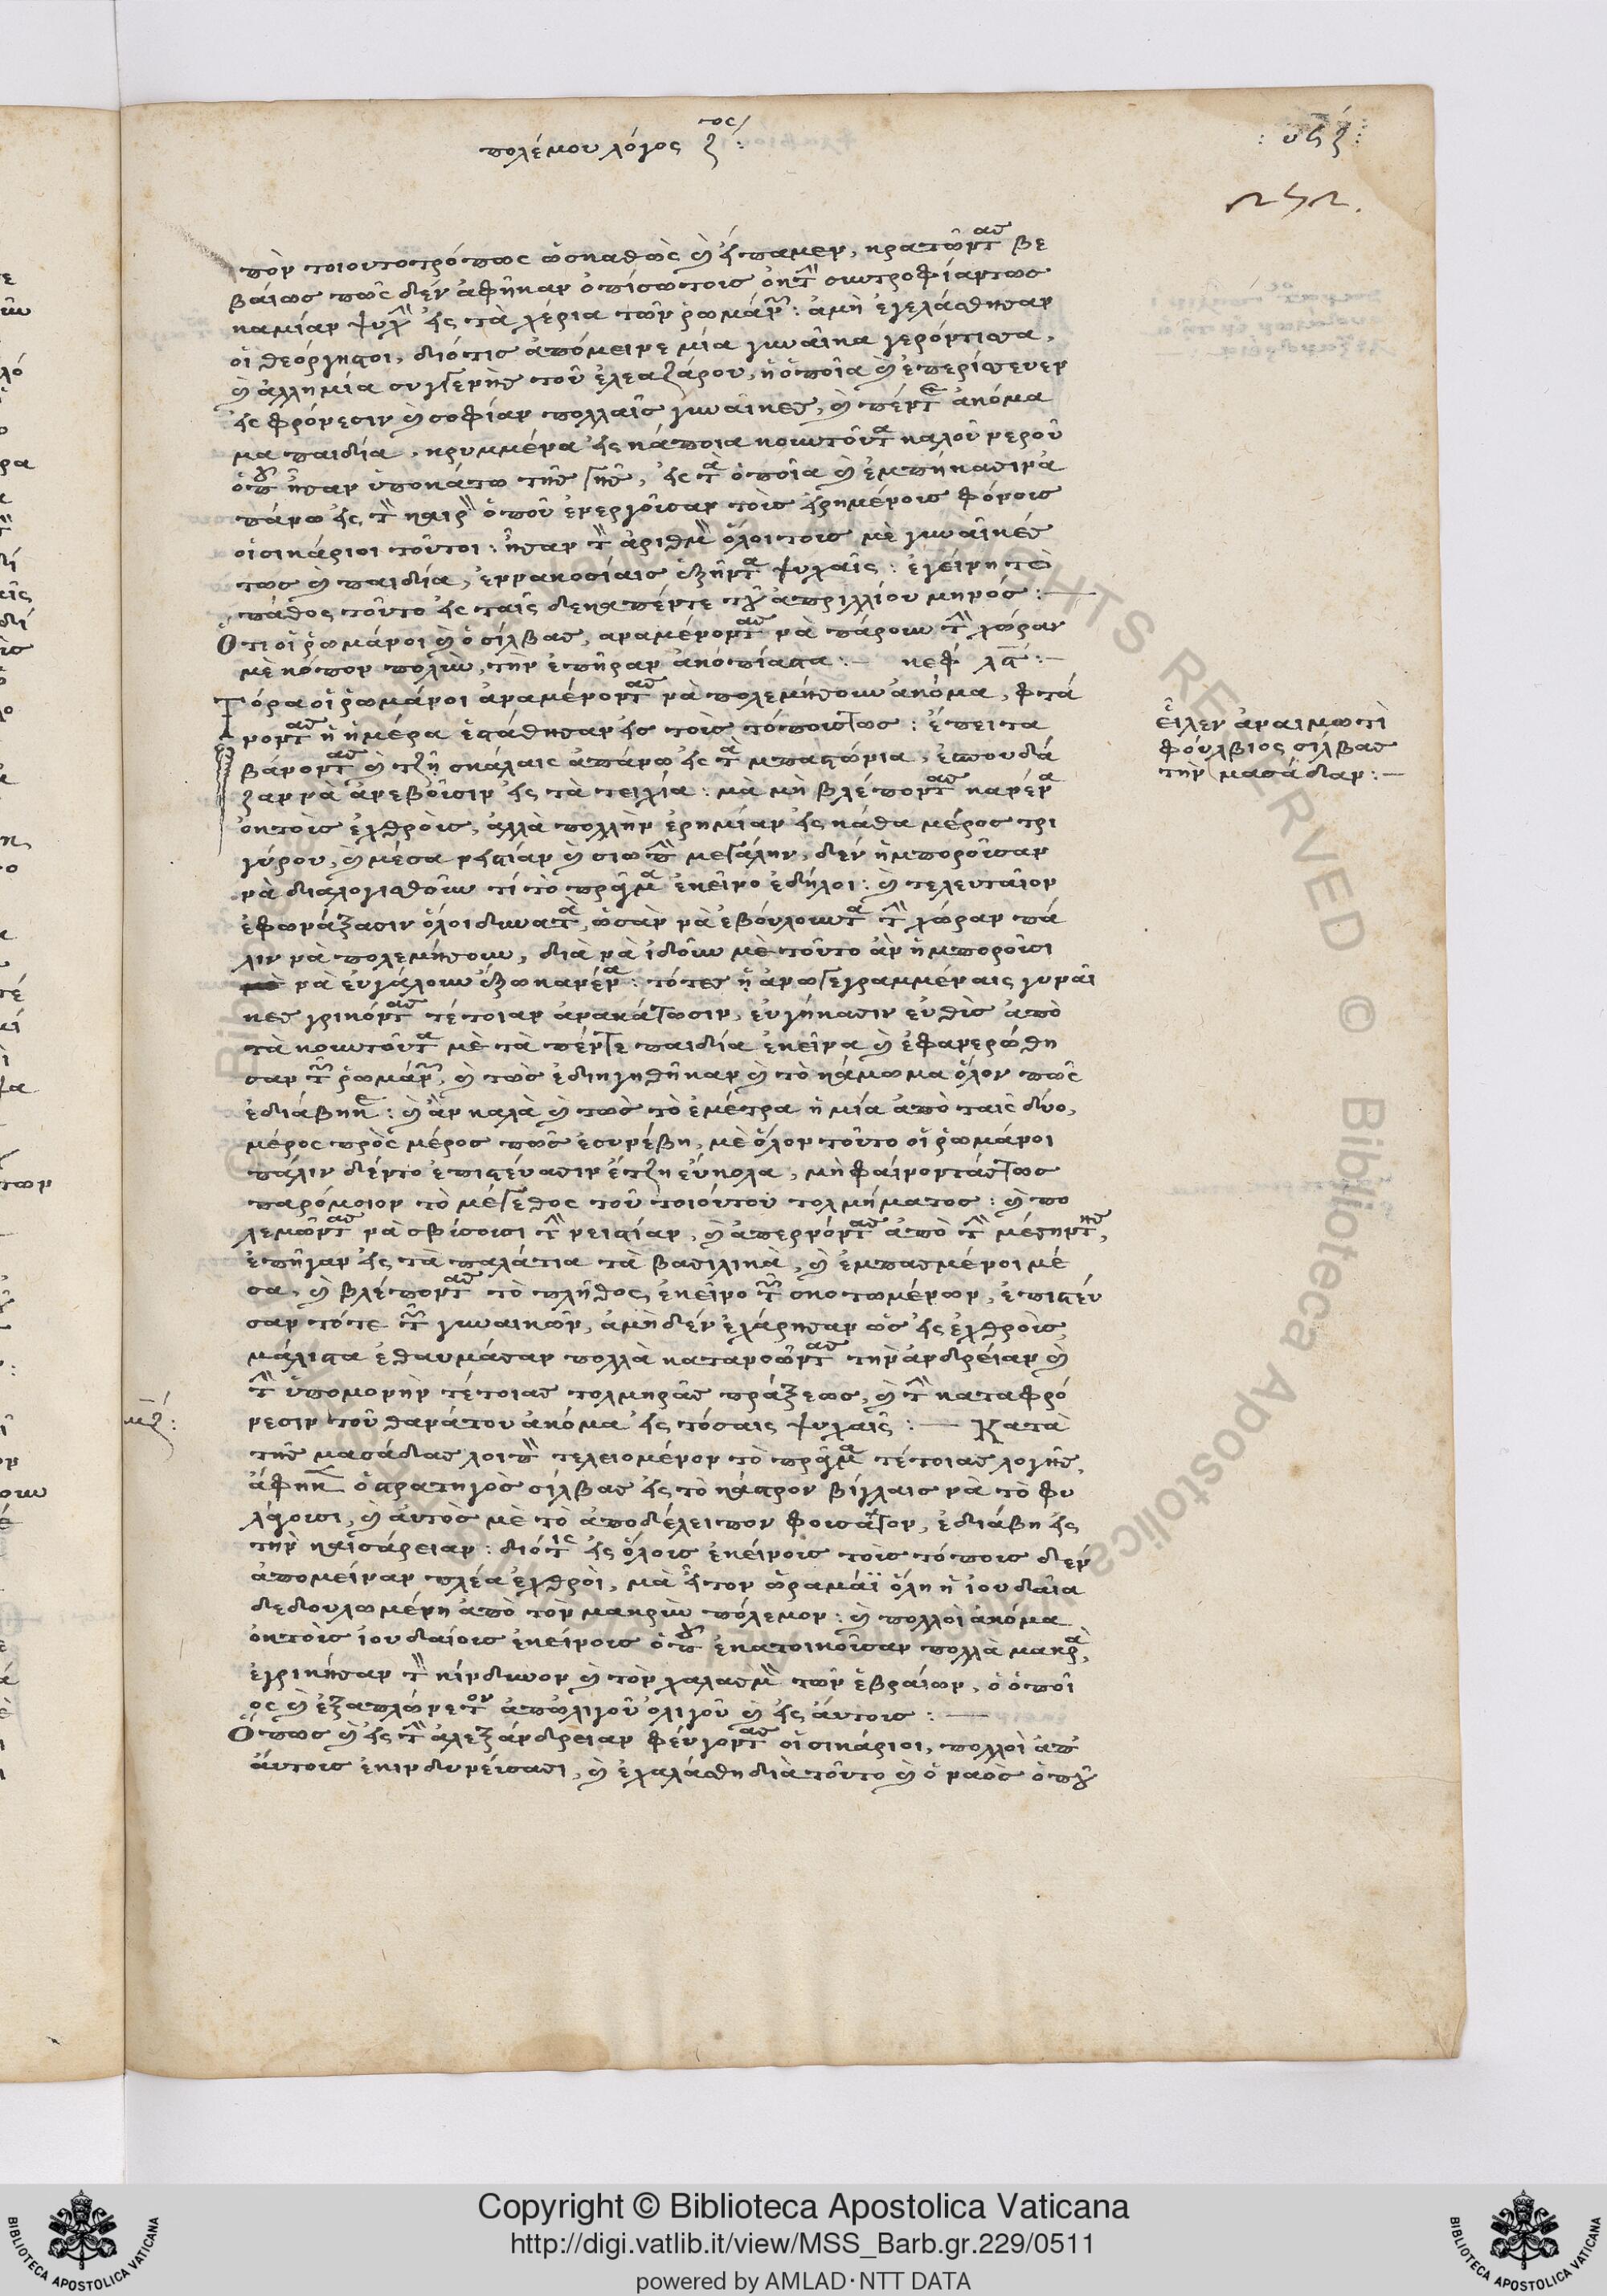 πολέμου λόγος ζ^τος :
: υϛζ :
πὸν τοιουτοτρόπως ὡσκαθὼς καὶ εἴπαμεν, κρατῶντας βε
βάιως πῶς δὲν ἀφῆκαν ὀπίσωτοις ὀκτὴν συντροφίαντως
καμίαν ψυχὴν εἰς τὰ χέρια τῶν ῥωμάνων : ἀμὴ ἐγελάσθησαν
οἱ θεόργιστοι, διότις ἀπόμεινε μία γυναῖκα γερόντισσα,
καὶ ἄλλη μία συγγενὴς τοῦ ἐλεαζάρου, ἡ ὁποῖα καὶ ἐπερίσσευεν
εἰς φρόνεσιν καὶ σοφίαν πολλαῖς γυναῖκες, καὶ πέντε ἀκόμα
μα παιδία, κρυμμένα εἰς κάποια κουτοῦτα καλοῦ νεροῦ
ὁποῦ ἦσαν ὑποκάτω τῆς γῆς, εἰς τὰ ὁποῖα καὶ ἐμπήκασιν ἀ
πάνω εἰς τὸν καιρὸν ὁποῦ ἐνεργοῦσαν τοὶς εἰρημένοις φόνοις
οἱ σικάριοι τοῦτοι : ἦσαν τὸν ἀριθμὸν ὅλοι τοις μὲ γυναῖκές
τως καὶ παιδία, ἐννακοσίαις ἑξῆντα ψυχαῖς : ἐγείνη τὸ
πάθος τοῦτο εἰς ταῖς δεκαπέντε τοῦ ἀπριλλίου μηνός : —
Ὅτι οἱ ῥωμάνοι καὶ ὁ σίλβας, αναμένοντας νὰ πάρουν τὴν χώραν
μὲ κόπον πολὺν, τὴν ἐπῆραν ἀκόπίαστα : — κεφ λϛ : —
Τόρα οἱ ῥωμάνοι ἀναμένοντας νὰ πολεμήσουν ἀκόμα, φτά
νοντας ἡ ἡμέρα ἐστάθησαν εἰς τοὶς τόποις τως : ἔπειτα
βάνοντας καὶ τζῆ σκάλαις ἀπάνω εἰς τὰ μπαστώνια, ἐσπουδά
ζαν νὰ ἀνεβοῦσιν εἰς τὰ τειχία : μὰ μὴ βλέποντας κανένα
ὀκτοὶς ἐχθροὶς, ἀλλὰ πολλὴν ἐρημίαν εἰς κάθα μέρος τρι
γύρου, καὶ μέσα νεϊστίαν καὶ σιωπὴν μεγάλην, δὲν ἡμποροῦσαν
νὰ διαλογισθοῦν τί τὸ πρᾶγμα ἐκεῖνο ἐδήλοι : καὶ τελευταῖον
ἐφωνάξασιν ὅλοι δυνατὰ, ὡσὰν νὰ ἐβούλουντα τὴν χώραν πά
λιν νὰ πολεμήσουν, διὰ νὰ ἰδοῦν μὲ τοῦτο ἂν ἡμποροῦσι
νὰ εὐγάλουν ἔξω κανένα : τότες ᾑ ἀνωγεγραμμέναις γυναῖ
κες γρικόντας τέτοιαν ἀνακάτωσιν, εὐγήκασιν εὐθὶς ἀπὸ
τὰ κουτοῦτα μὲ τὰ πέντε παιδία ἐκεῖνα καὶ ἐφανερώθη
σαν τῶν ῥωμάνων, καὶ τὼς ἐδιηγηθῆκαν καὶ τὸ κάμωμα ὅλον πῶς
ἐδιάβηκε : καὶ ἂν καλὰ καὶ τὼς τὸ ἐμέτρα ἡ μία ἀπὸ ταὶς δύο,
μέρος πρὸς μέρος πῶς ἐσυνέβη, μὲ ὅλον τοῦτο οἱ ῥωμάνοι
πάλιν δέντο ἐπιστεύασιν ἔτζη εὔκολα, μὴ φαίνοντάς τως
παρόμοιον τὸ μέγεθος τοῦ τοιούτου τολμήματος : καὶ πο
λεμῶντας νὰ σβίσουσι τὴν νεϊστίαν, καὶ ἀπερνόντας ἀπὸ τὴν μέσηντης,
ἐπῆγαν εἰς τὰ παλάτια τὰ βασιλικὰ, καὶ ἐμπασμένοι μέ
σα, καὶ βλέποντας τὸ πλῆθος ἐκεῖνο τῶν σκοτωμένων, ἐπιστεύ
σαν τότε τῶν γυναικῶν, ἀμὴ δὲν ἐχάρησαν ὡς εἰς ἐχθροὶς,
μάλιστα ἐθαυμάσαν πολλὰ κατανοῶντας τὴν ἀνδρείαν καὶ
τὴν ὑπομονὴν τέτοιας τολμηρᾶς πράξεως, καὶ τὴν καταφρό
νεσιν τοῦ θανάτου ἀκόμα εἰς τόσαις ψυχαῖς : — Κατὰ
τῆς μασάδας λοιπὸν τελειομένον τὸ πρᾶγμα τέτοιας λογῆς,
ἄφηκε ὁ στρατηγὸς σίλβας εἰς τὸ κάστρον βίγλαις νὰ τὸ φυ
λάγουσι, καὶ ἀυτὸς μὲ τὸ ἀποδέλειπον φουσάτον, ἐδιάβη εἰς
τὴν καϊσάρειαν : διότις εἰς ὅλοις ἐκείνοις τοὶς τόποις δὲν
ἀπομείναν πλέα ἐχθροὶ, μὰ εἶτον ὡραμάϊ ὅλη ἡ ἰουδαῖα
δεδουλωμένη ἀπὸ τὸν μακρὺν πόλεμον : καὶ πολλοὶ ἀκόμα
ὀκτοὶς ἰουδαίοις ἐκείνοις ὁποῦ ἐκατοικοῦσαν πολλὰ μακρὰ,
ἐγρικήσαν τὸν κίνδυνον καὶ τὸν χαλασμὸν τῶν ἑβραίων, ὁ ὁποῖ
ος καὶ ἐξαπλώνετον ἀπ᾽ὀλιγοῦ ὀλιγοῦ καὶ εἰς ἀυτοις : —
Ὅπως καὶ εἰς τὴν ἀλεξάνδρειαν φεύγοντας οἱ σικάριοι, πολλοὶ ἀπ᾽
ἀυτοις ἐκινδυνεύσασι, καὶ ἐχαλάσθη διὰ τοῦτο καὶ ὁ ναὸς ὁποῦ
εἷλεν ἀναιμωτὶ
φούλβιος σίλβας
τὴν μασάδαν : —
μζ :
© Biblioteca Apostolica Vaticana. ALL RIGHTS RESERVED
BIBLIOTECA APOSTOLICA VATICANA
Copyright © Biblioteca Apostolica Vaticana
http://digi.vatlib.it/view/MSS_Barb.gr.229/0511
powered by AMLAD·NTT DATA
BIBLIOTECA APOSTOLICA VATICANA